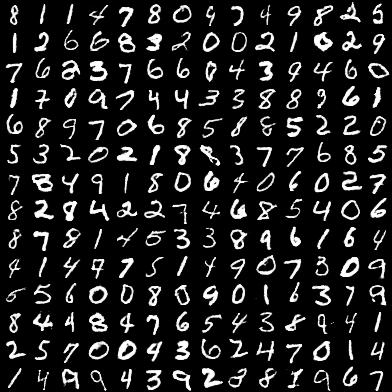 8 1 1 4 7 8 0 9 7 4 9 8 2 5
1 2 6 6 8 3 2 0 0 2 1 0 2 9
7 6 2 3 7 6 6 0 4 3 9 4 6 0
1 7 0 9 7 4 4 3 3 8 8 9 6 1
6 8 9 7 0 6 8 5 8 8 5 2 2 0
5 3 2 0 2 1 8 8 3 7 7 6 8 5
7 8 4 9 1 8 0 6 4 0 6 0 2 7
8 2 8 4 2 2 7 4 6 8 5 4 0 6
8 7 8 1 4 5 3 3 8 9 6 1 6 4
4 1 4 9 7 5 1 4 9 0 7 3 0 9
5 5 6 0 0 8 0 9 0 1 6 3 7 9
8 4 4 8 4 7 6 5 4 3 8 9 4 1
2 5 7 0 0 4 3 6 2 4 7 0 1 4
1 4 9 9 4 3 9 2 2 8 7 9 6 7